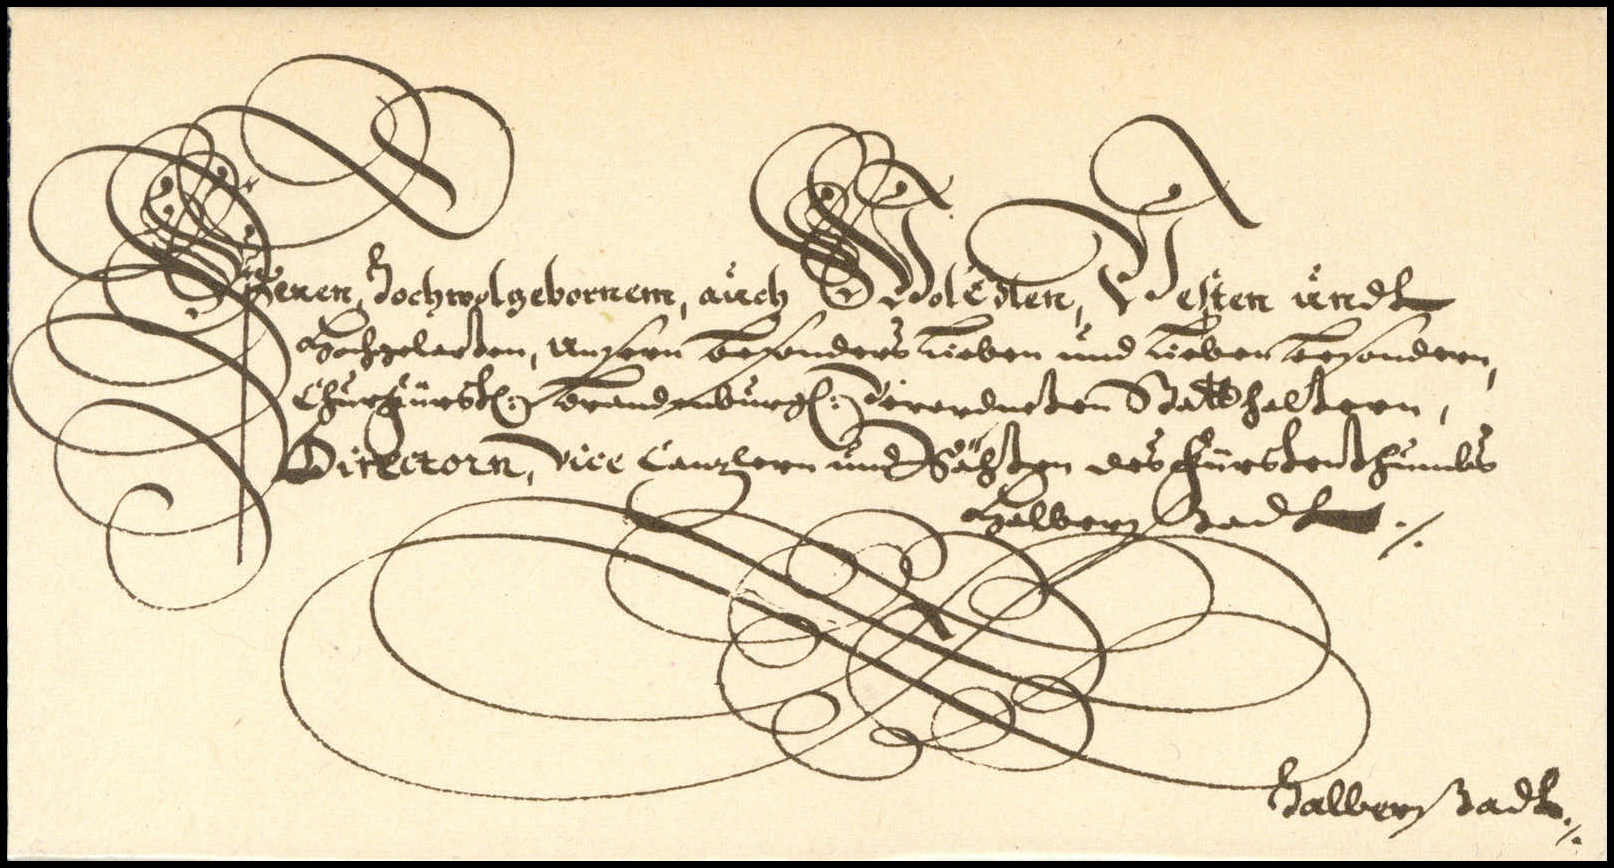 Deren, Hochwolgebornem, auch WolEdlen, Vesten undt
Hochgelarten, Unsern besonders Lieben und Lieben besondern,
Churfürstl: Brandenburgl: Verordneten Statthaltern,
Directorn, Vice Canzlern und Räthten des Fürstenthumbs
Halberstadt ./.
Halberstadt ./.